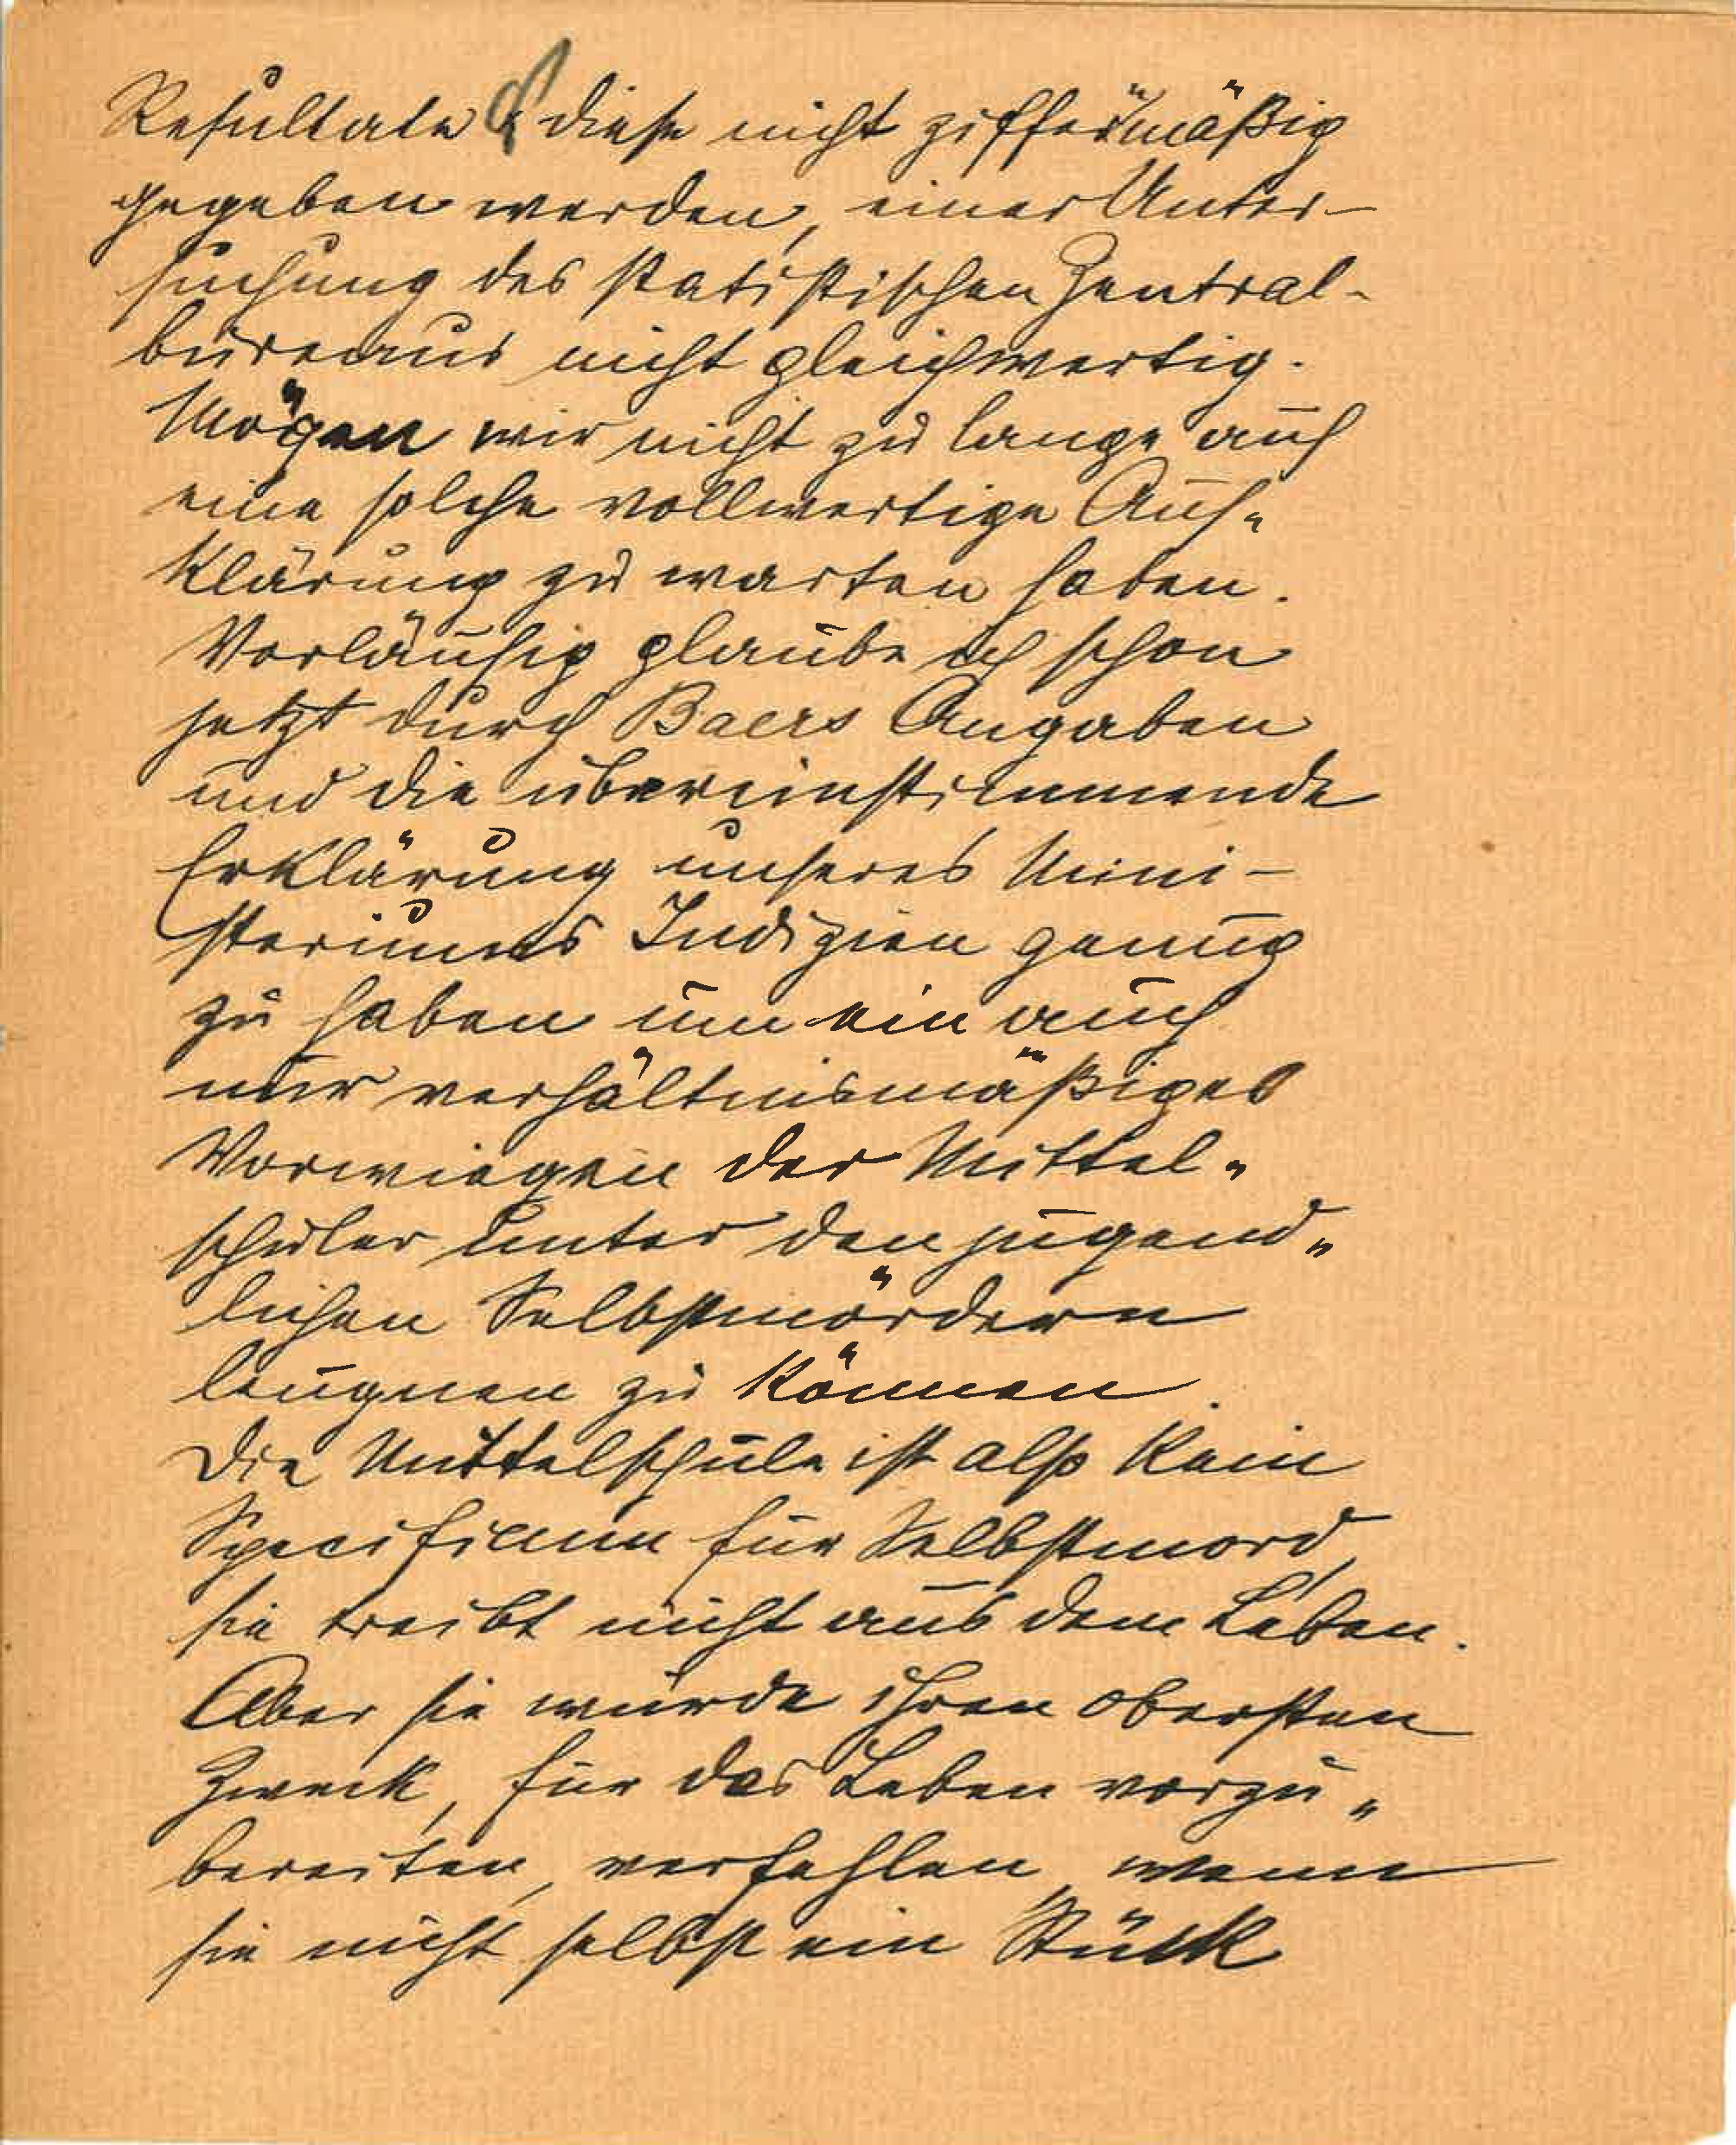 Resultate & diese nicht ziffermäßig
gegeben werden, einer Unter-
suchung des statistischen Zentral-
büreaus nicht gleichwertig.
Mögen wir nicht zu lange auf
eine solche vollwertige Auf-
klärung zu warten haben.
Vorläufig glaube ich schon
jetzt durch Baers Angaben
und die übereinstimmende
Erklärung unseres Mini-
steriums Indizien genug
zu haben um ein auch
nur verhältnismäßiges
Vorwiegen der Mittel-
schüler unter den jugend-
lichen Selbstmördern
leugnen zu können.
Die Mittelschule ist also kein
Specificum für Selbstmord,
sie treibt nicht aus dem Leben.
Aber sie würde ihren obersten
Zweck, für das Leben vorzu-
bereiten, verfehlen, wenn
sie nicht selbst ein Stück